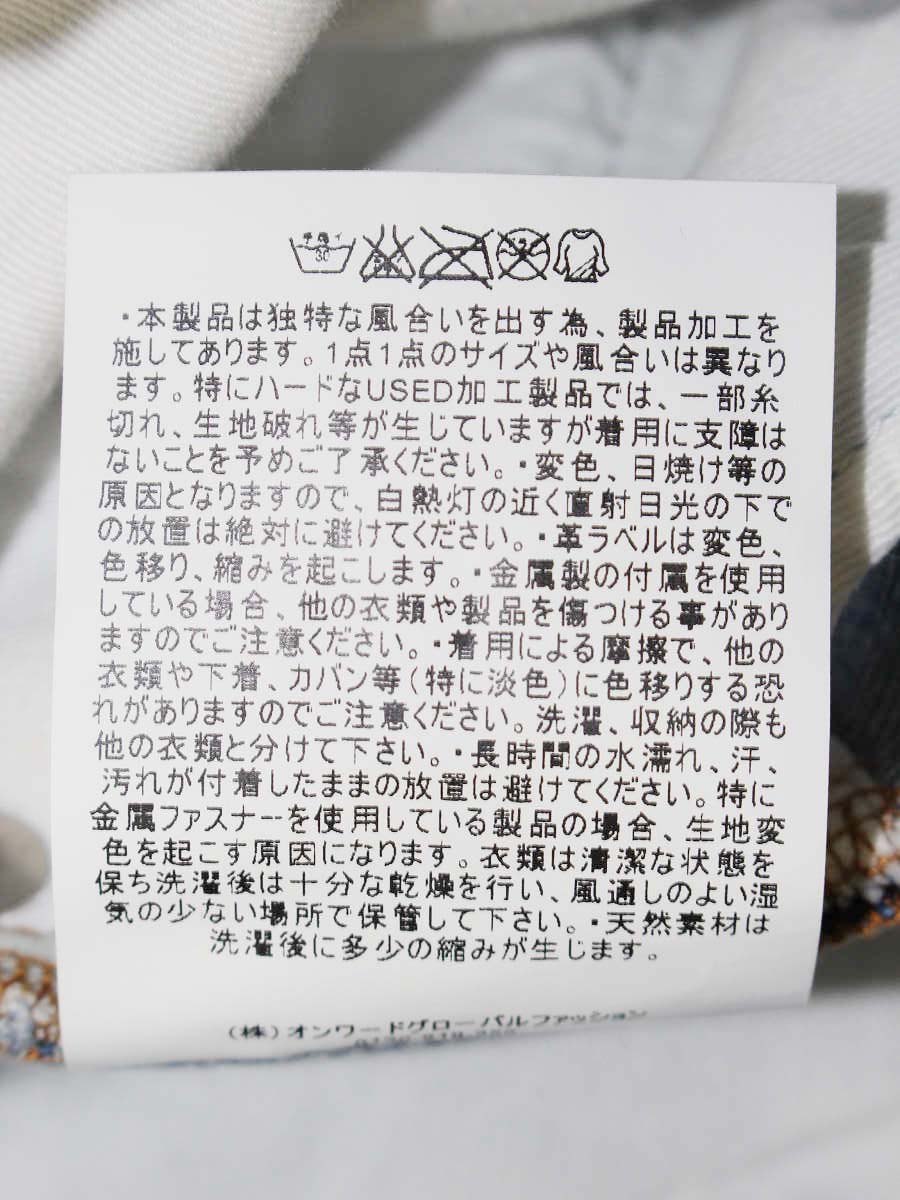 手洗イ
30
・本製品は独特な風合いを出す為、製品加工を
施してあります。1点1点のサイズや風合いは異なり
ます。特にハードなUSED加工製品では、一部糸
切れ、生地破れ等が生じていますが着用に支障は
ないことを予めご了承ください。・変色、日焼け等の
原因となりますので、白熱灯の近く直射日光の下で
の放置は絶対に避けてください。・革ラベルは変色、
色移り、縮みを起こします。・金属製の付属を使用
している場合、他の衣類や製品を傷つける事があり
ますのでご注意ください。・着用による摩擦で、他の
衣類や下着、カバン等(特に淡色)に色移りする恐
れがありますのでご注意ください。洗濯、収納の際も
他の衣類と分けて下さい。・長時間の水濡れ、汗、
汚れが付着したままの放置は避けてください。特に
金属ファスナーを使用している製品の場合、生地変
色を起こす原因になります。衣類は清潔な状態を
保ち洗濯後は十分な乾燥を行い、風通しのよい湿
気の少ない場所で保管して下さい。・天然素材は
洗濯後に多少の縮みが生じます。
(株)オンワードグローバルファッション